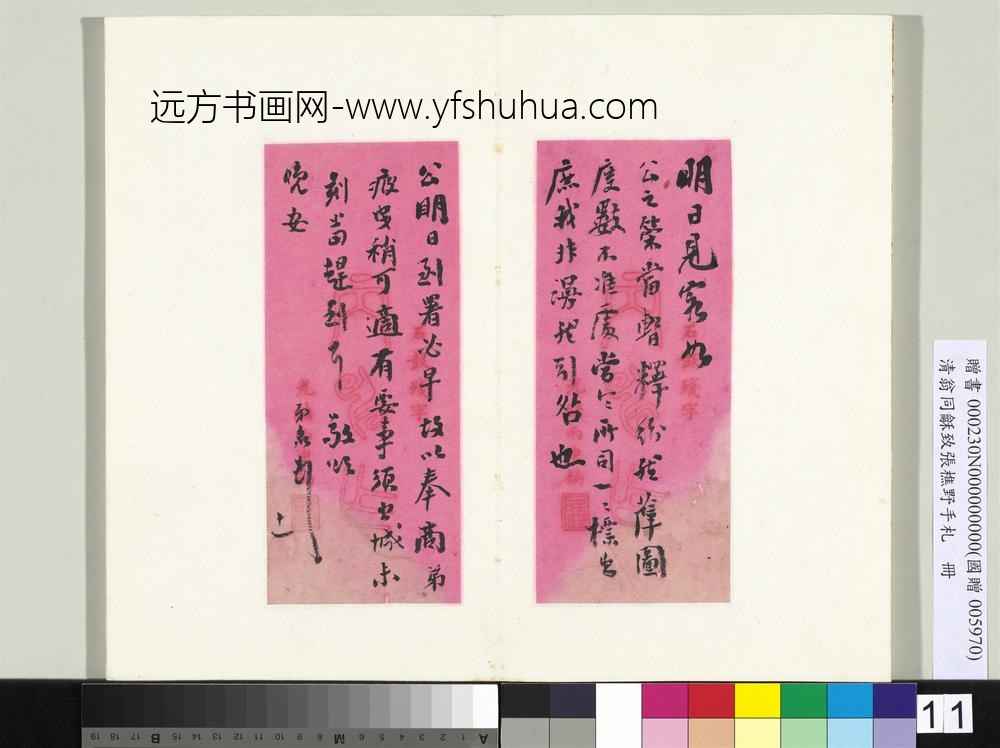 远方书画网-www.yfshuhua.com
明日見客如
公之策當暫釋紛然薩圖
度數不准處當令所司一〻標出
庶我非漫然引咎也
公明日到署必早故以奉商弟
疲曳稍可適有要事須出城未
刻當趕到耳 敬頌
晚安
弟 十一
石 殘字
石 殘字
贈書 000230N000000000(國贈 005970)
清翁同龢致張樵野手札 冊
11
19 18 17 16 15 14 13 12 11 10 9 8 7 6 5 4 3 2 1
B M A